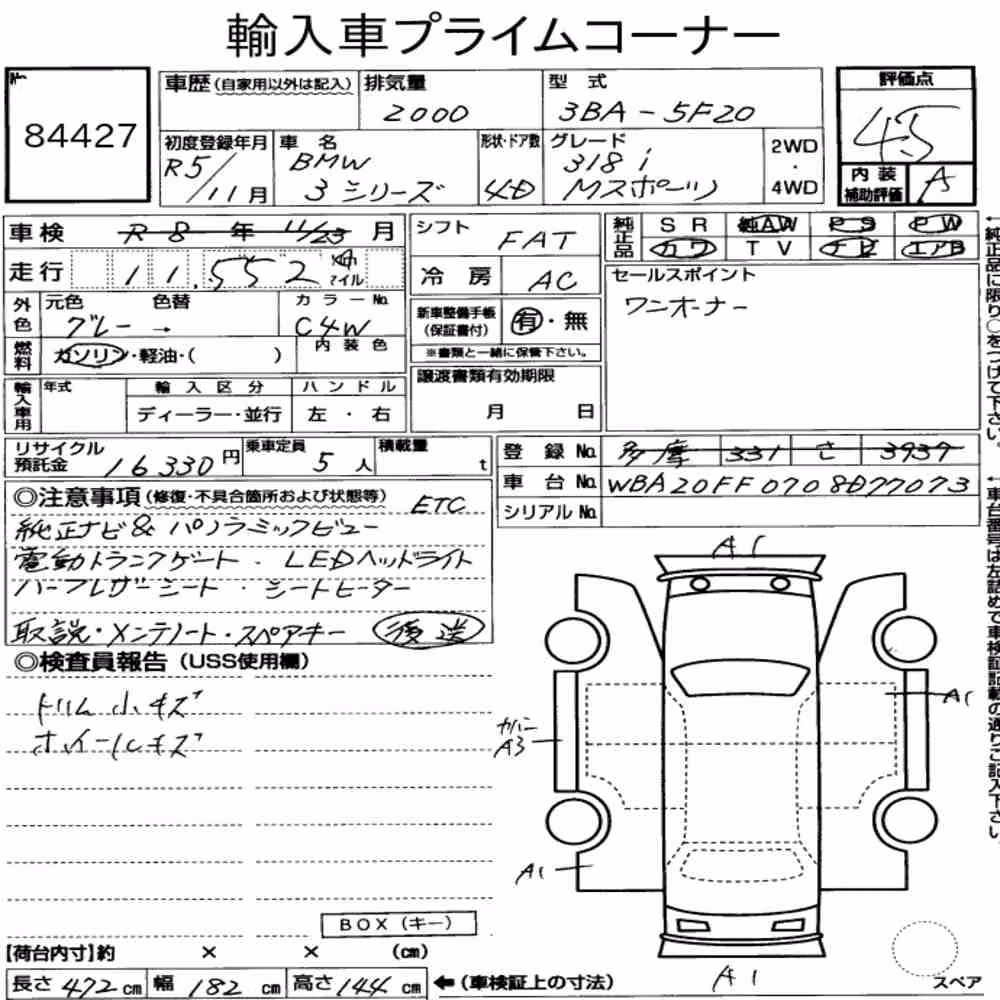 輸入車プライムコーナー
No.
84427
車歴(自家用以外は記入) 排気量 2000 型式 3BA-5F20
初度登録年月 R5/11月 車名 BMW 3シリーズ 形状・ドア数 4D グレード 318i Mスポーツ 2WD・4WD
評価点 4.5
内装補助評価 A
車検 R 8 年 11/23 月
走行 11,552 km マイル
外色 元色 グレー 色替 → カラーNo. C4W
燃料 ガソリン・軽油・( ) 内装色
輸入車用 年式 輸入区分 ディーラー・並行 ハンドル 左・右
シフト FAT
冷房 AC
新車整備手帳(保証書付) 有・無
※書類と一緒に保管下さい。
譲渡書類有効期限
月 日
純正品 SR 純AW PS PW
カワ TV ナビ エアB
セールスポイント
ワンオーナー
←純正品に限り○をつけて下さい。
リサイクル預託金 16330円 乗車定員 5人 積載量 t
登録No. 多摩 331 さ 3937
車台No. WBA20FF0708D77073
シリアルNo.
←車台番号は左詰めで車検証記載の通りご記入下さい。
◎注意事項(修復・不具合箇所および状態等) ETC
純正ナビ& パノラミックビュー
電動トランクゲート・LEDヘッドライト
ハーフレザーシート・シートヒーター
取説・メンテノート・スペアキー 後送
◎検査員報告(USS使用欄)
トリム小キズ
ホイールキズ
A1
A1
カバー A3
A1
A1
BOX(キー)
【荷台内寸】約 × × (cm)
長さ 472 cm 幅 182 cm 高さ 144 cm ←(車検証上の寸法)
スペア